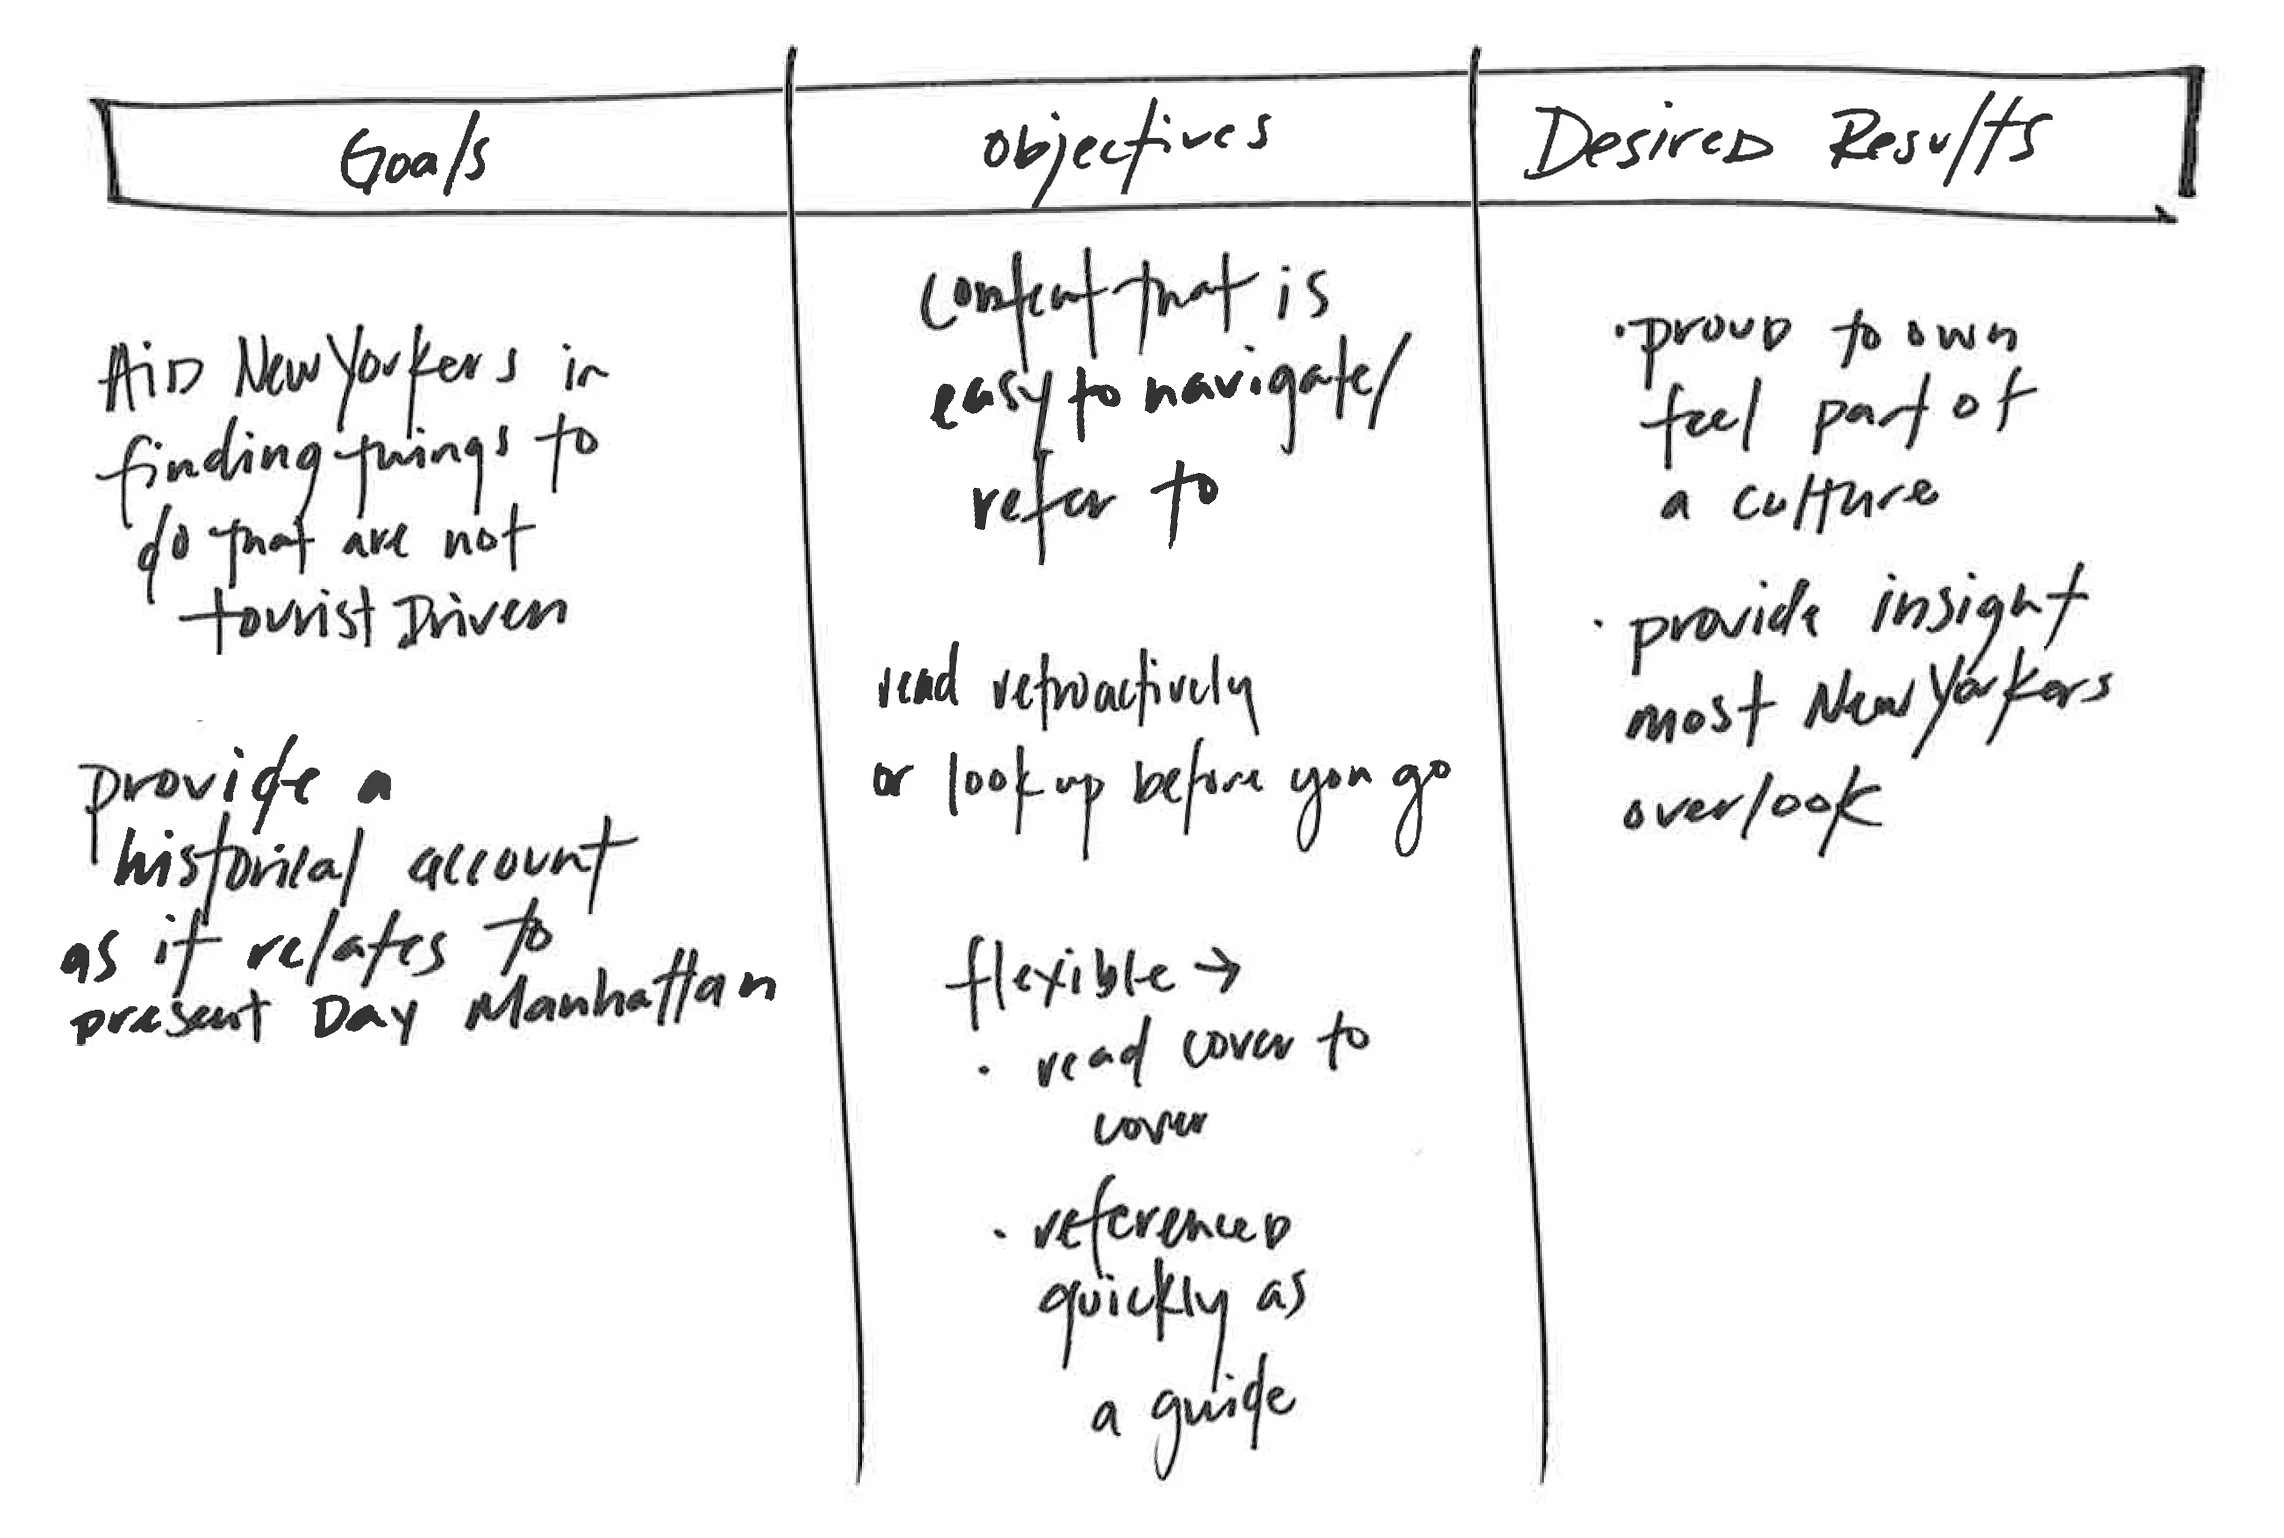 Goals
Objectives
Desired Results
Aid New Yorkers in
finding things to
do that are not
tourist Driven
provide a
historical account
as it relates to
present Day Manhattan
Content that is
easy to navigate/
refer to
read retroactively
or look up before you go
flexible →
· read cover to
cover
· referenced
quickly as
a guide
· proud to own
feel part of
a culture
· provide insight
most New Yorkers
overlook